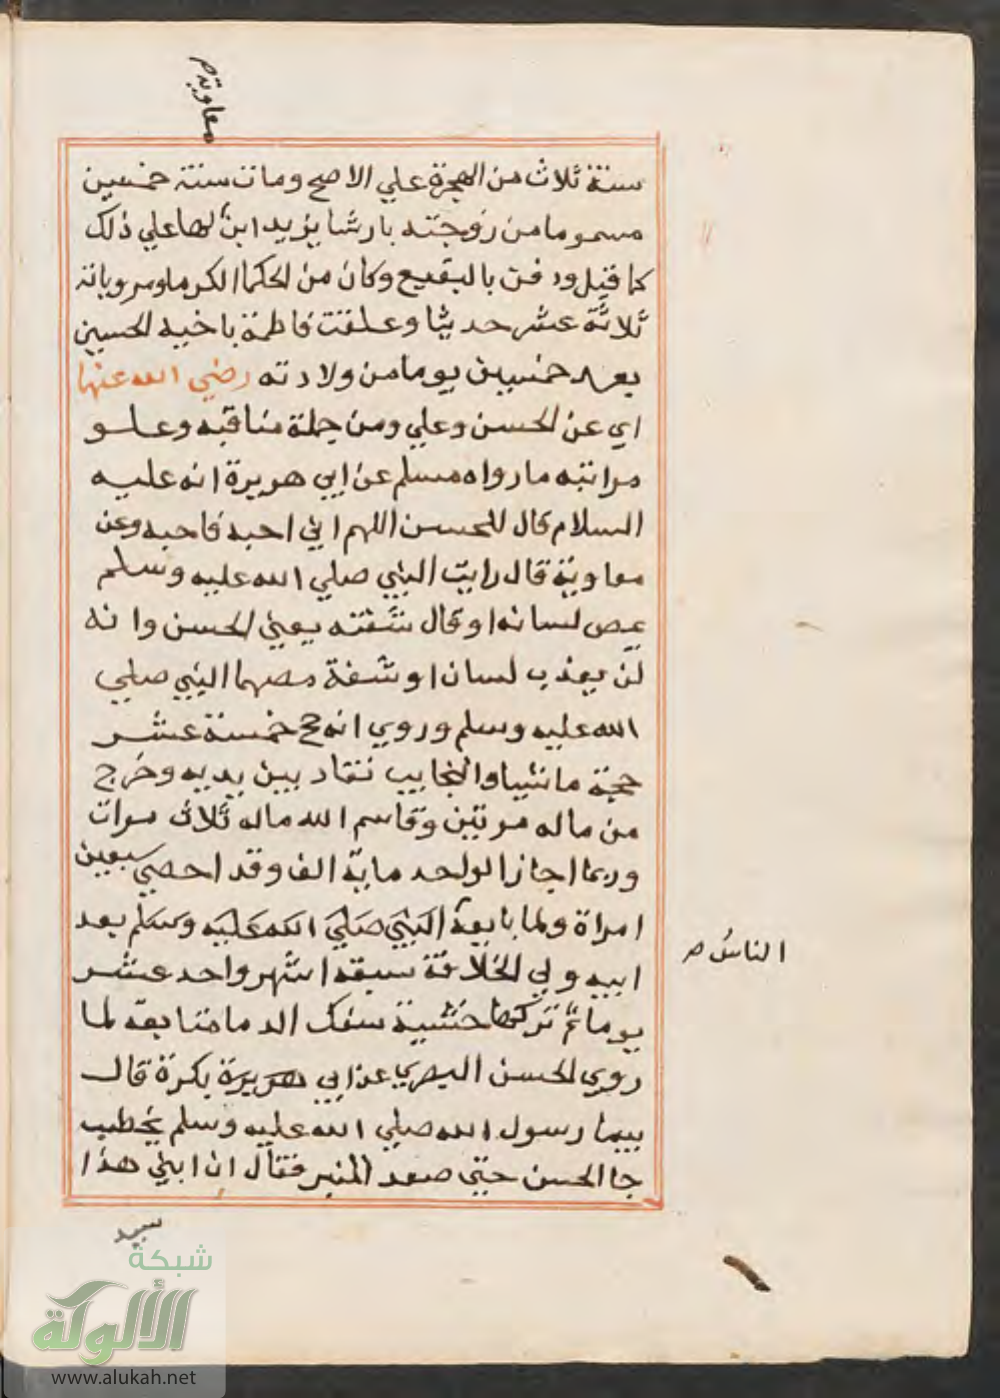 معاوية صح
سنة ثلاث من الهجرة علي الاصح ومات سنة خمسين
مسموما من زوجته بارشا يزيد ابن لها علي ذلك
كما قيل ودفن بالبقيع وكان من الحكما الكرما ومروياته
ثلاثة عشر حديثا وعلقت فاطمة باخيه الحسين
بعد خمسين يوما من ولادته رضي الله عنهما
اي عن الحسن وعلي ومن جملة مناقبه وعلو
مراتبه ما رواه مسلم عن ابي هريرة انه عليه
السلام قال للحسن اللهم اني احبه فاحبه وعن
معاوية قال رايت النبي صلي الله عليه وسلم
يمص لسانه او قال شفته يعني الحسن وانه
لن يعذب لسان او شفة مصهما النبي صلي
الله عليه وسلم وروي انه حج خمسة عشر
حجة ماشيا والنجايب تقاد بين يديه وخرج
من ماله مرتين وقاسم الله ماله ثلاث مرات
وربما اجاز الواحد ماية الف وقد احصي سبعين
امراة ولما بايعه النبي صلي الله عليه وسلم بعد
الناس صح
ابيه ولي الخلافة سبقه اشهر واحد عشر
يوما ثم تركها خشية سفك الدما متابعة لما
روي الحسن البصري عن ابي هريرة بكرة قال
بينما رسول الله صلي الله عليه وسلم يخطب
جا الحسن حتي صعد المنبر فقال ان ابني هذا
سيد
شبكة
الألوكة
www.alukah.net